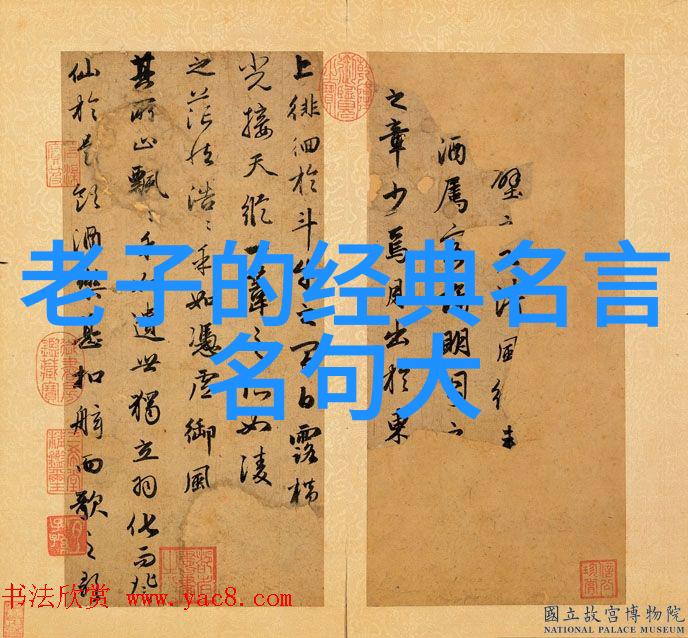 老子的经典名言
名句大
清風徐来
酒属客誦明月之
之章少焉月出於東
上徘徊於斗牛之間白露横
光接天縦一葦之所如凌
之茫然浩々乎如馮虚御風
其所止飄々乎如遺世獨立羽化而登
仙於是飲酒樂甚扣舷而歌之歌
书法欣赏 www.yac8.com
國立故宮博物院
NATIONAL PALACE MUSEUM